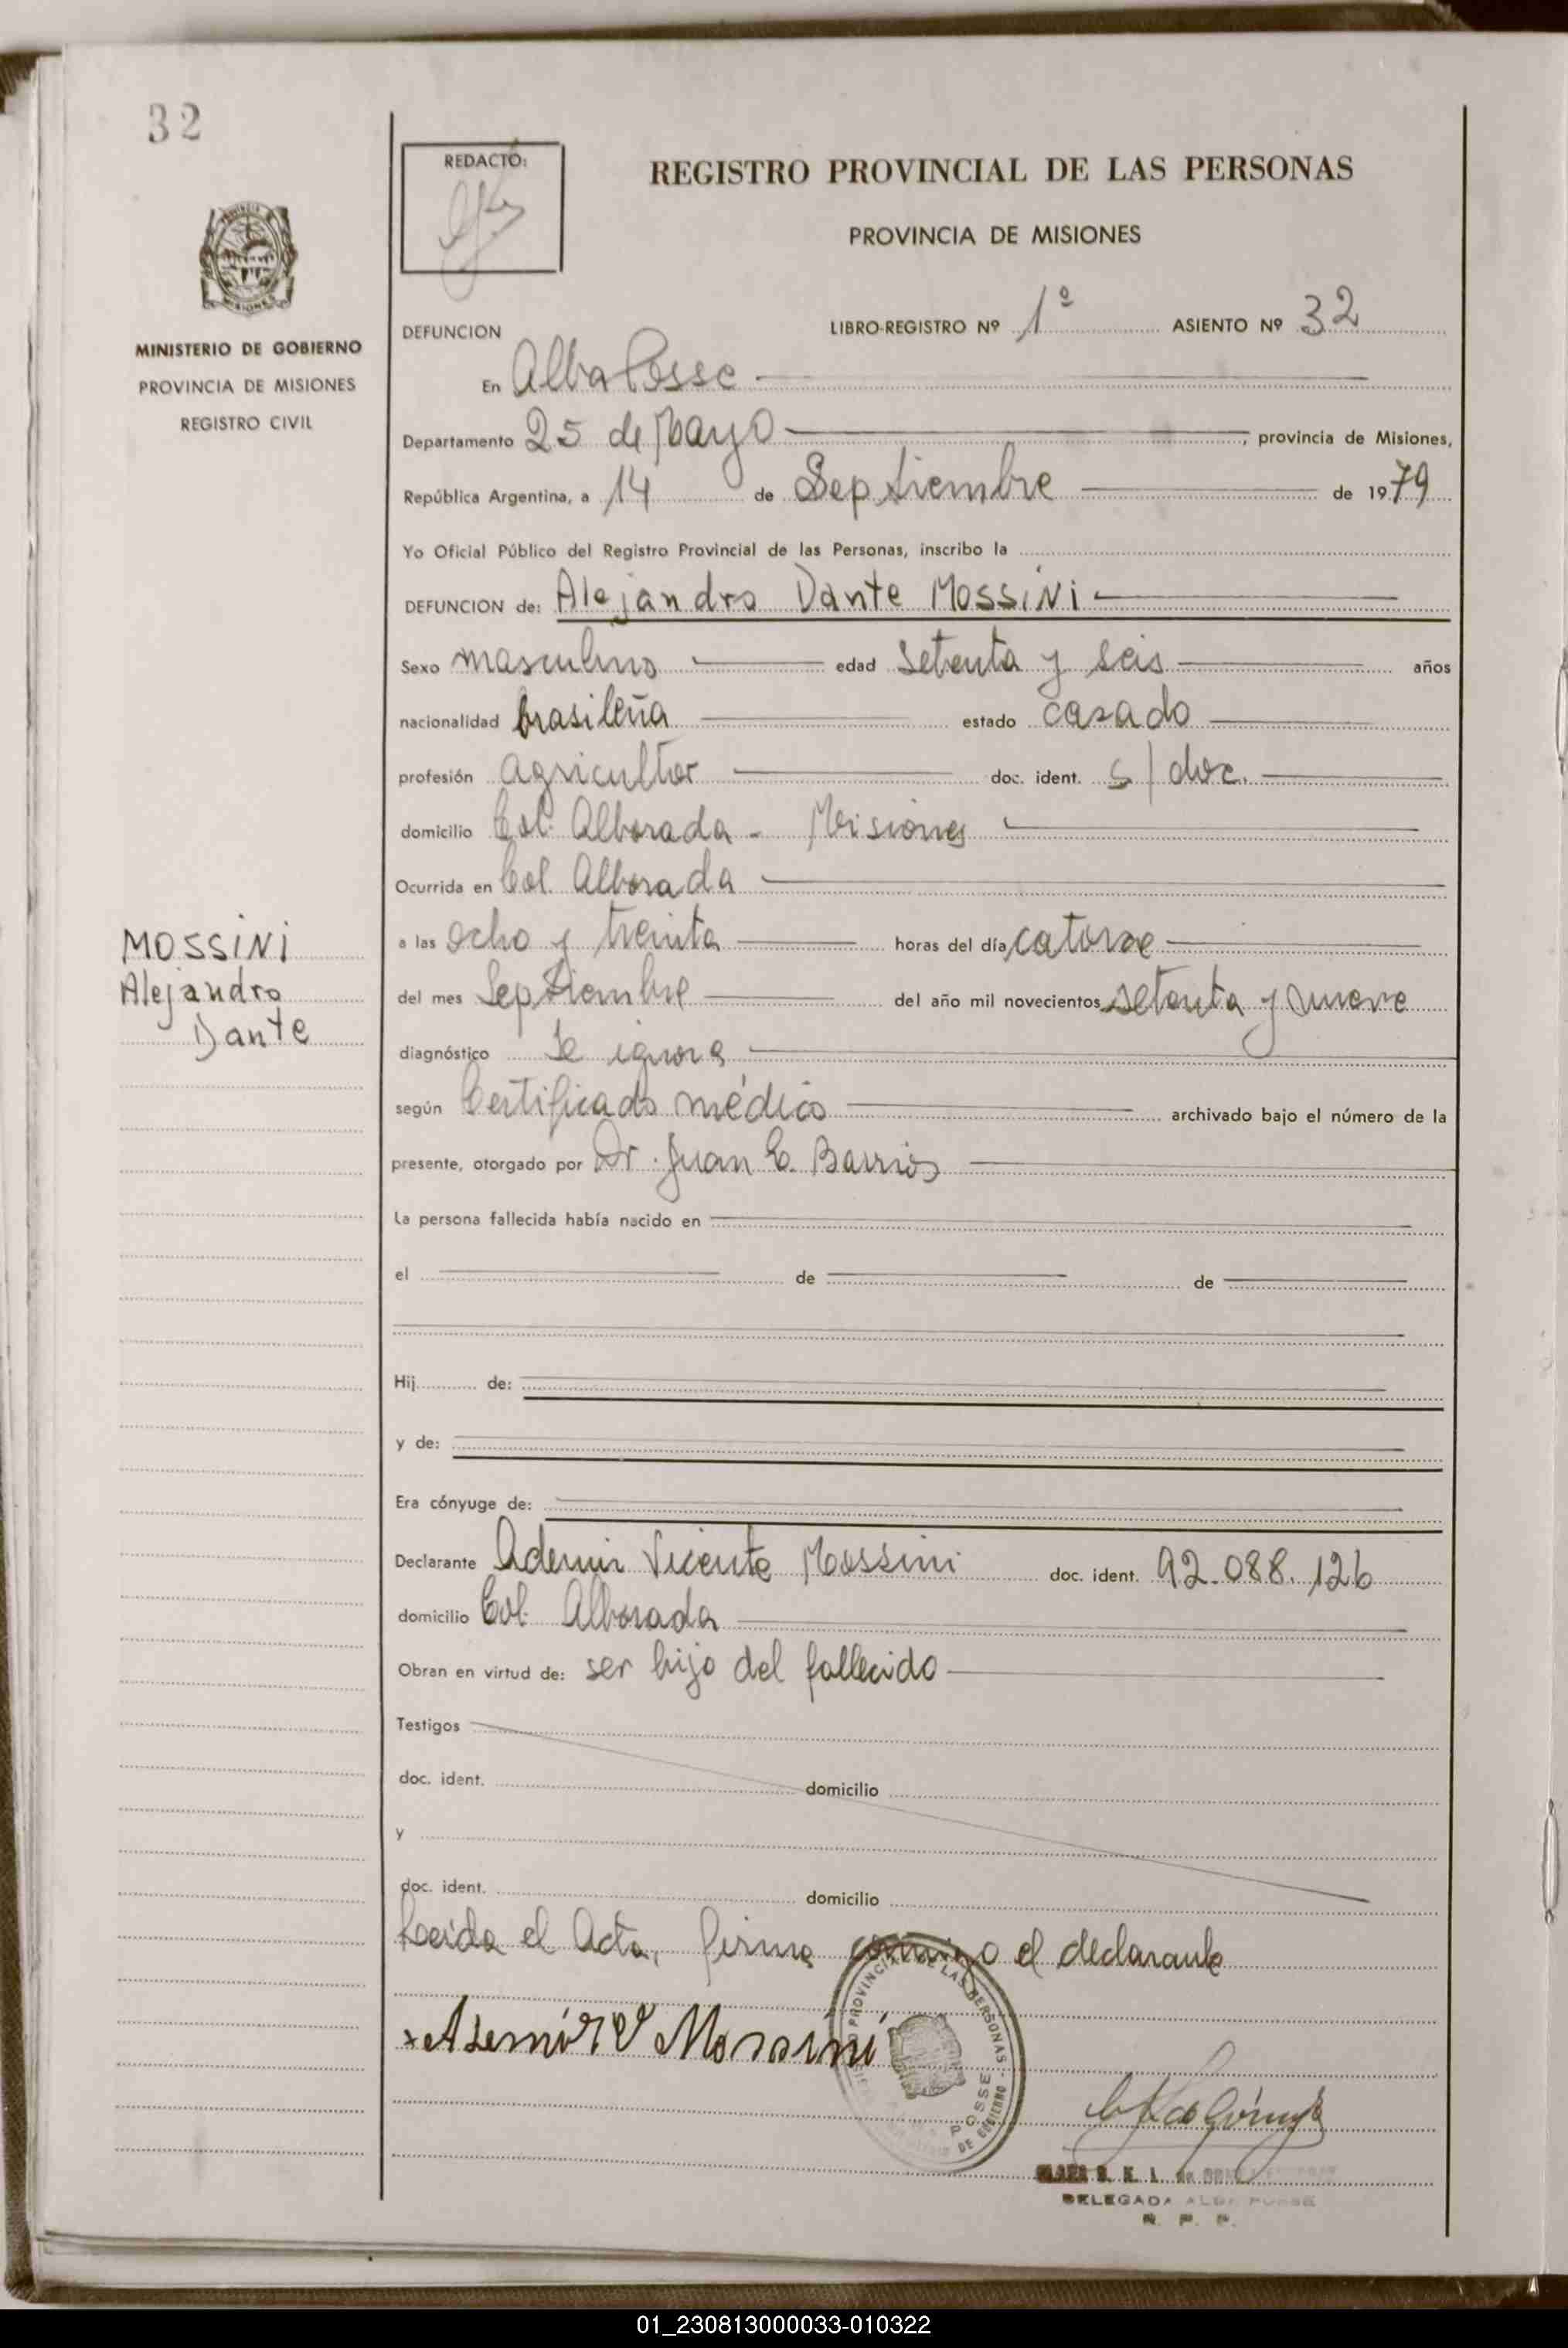 32
REDACTÓ:
REGISTRO PROVINCIAL DE LAS PERSONAS
PROVINCIA DE MISIONES
MINISTERIO DE GOBIERNO
PROVINCIA DE MISIONES
REGISTRO CIVIL
DEFUNCION LIBRO-REGISTRO Nº 1º ASIENTO Nº 32
En Alba Posse
Departamento 25 de Mayo, provincia de Misiones,
República Argentina, a 14 de Septiembre de 1979
Yo Oficial Público del Registro Provincial de las Personas, inscribo la
DEFUNCION de: Alejandro Dante Mossini
Sexo masculino edad setenta y seis años
nacionalidad brasileña estado casado
profesión agricultor doc. ident. s/doc.
domicilio Col. Alborada - Misiones
Ocurrida en Col. Alborada
MOSSINI
Alejandro
Dante
a las ocho y treinta horas del día catorce
del mes Septiembre del año mil novecientos setenta y nueve
diagnóstico Se ignora
según Certificado médico archivado bajo el número de la
presente, otorgado por Dr. Juan C. Barrios
La persona fallecida había nacido en
el de de
Hij de:
y de:
Era cónyuge de:
Declarante Ademir Vicente Mossini doc. ident. 92.088.126
domicilio Col. Alborada
Obran en virtud de: ser hijo del fallecido
Testigos
doc. ident. domicilio
y
doc. ident. domicilio
Leída el Acta, firma conmigo el declarante
PROVINCIAL DE LAS PERSONAS
POSSE
Ademir V Mossini
DELEGADA ALBA POSSE
R. P. P.
01_230813000033-010322